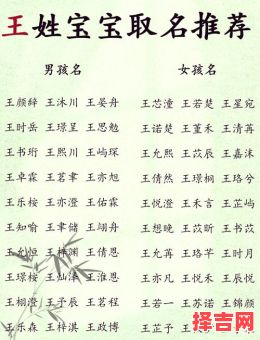 王姓宝宝取名推荐
男孩名 女孩名
王颜辞 王沐川 王晏舟 王芯潼 王若楚 王星宛
王时岳 王璟呈 王思勉 王诺楚 王堇禾 王清苒
王书珩 王熙川 王屿琛 王允熙 王苡辰 王嘉沫
王卓霖 王茗聿 王亦旭 王倩然 王璟桐 王珞兮
王乐桉 王亦澄 王佑霖 王悦澄 王禾言 王芷屿
王知喻 王聿储 王翊舟 王想晚 王苡昕 王书苡
王允恒 王梓渊 王倩恩 王允苒 王珞芊 王时月
王璟桉 王灿泽 王淮恩 王亦凡 王悦禾 王辰悦
王栩澄 王子辰 王茗程 王若一 王苏诺 王锦颜
王乐森 王梓淇 王政博 王芷予
择吉网